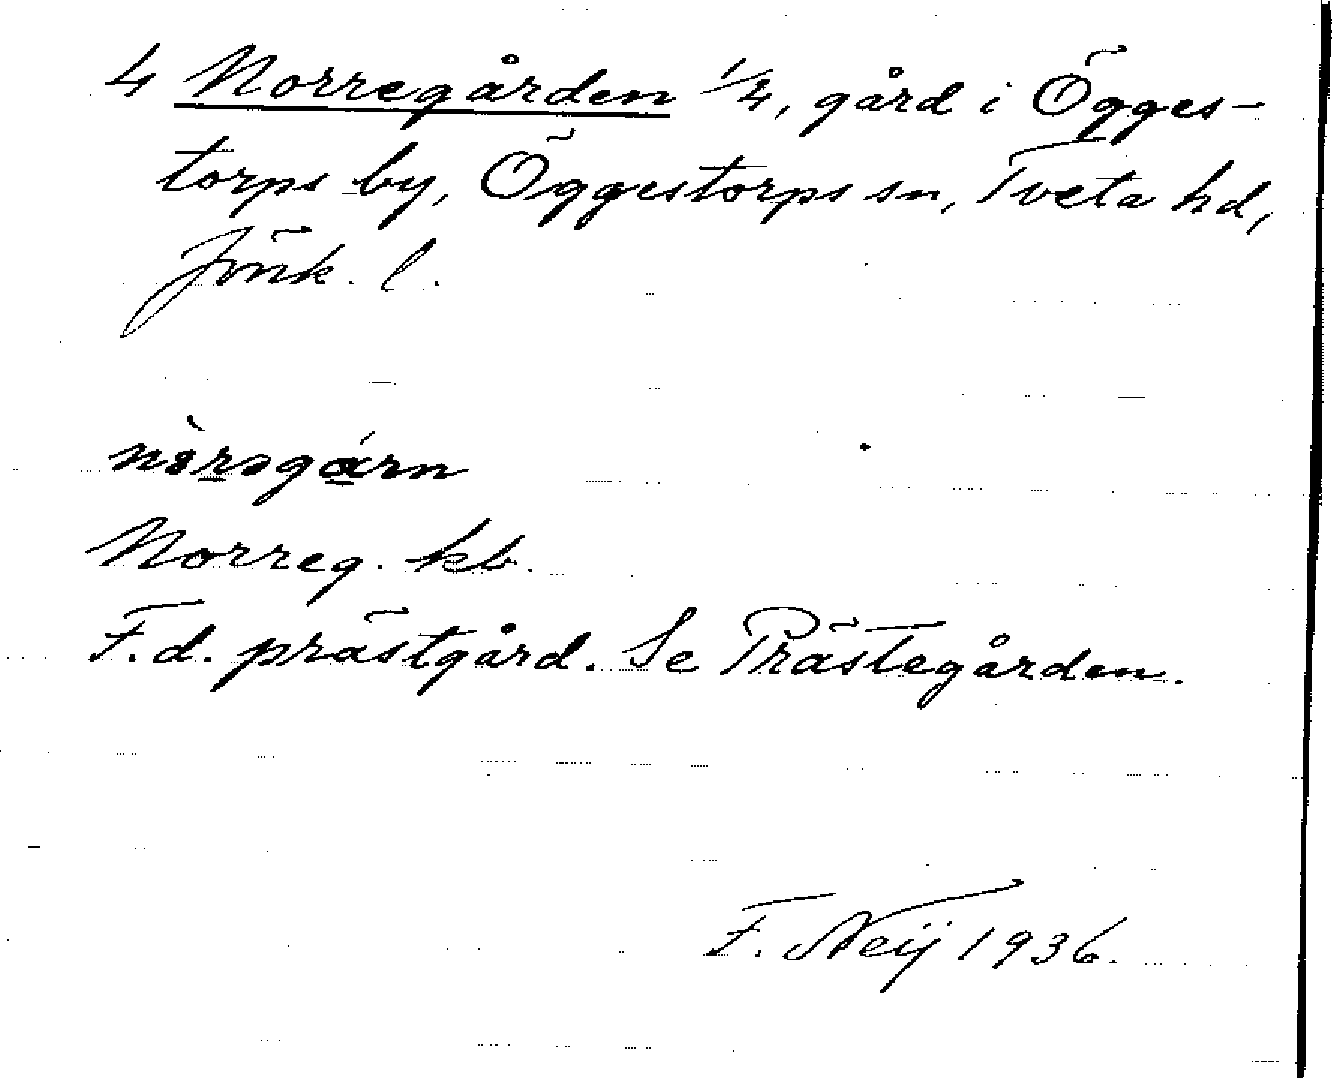 4 Norregården 1/4, gård i Ögges-
torps by, Öggestorps sn, Tveta hd,
Jönk. l.
Norreg. kb.
F.d. prästgård. Se Prästegården.
F. Neij 1936.